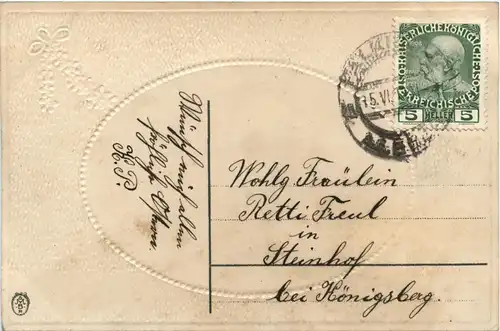 Wünsch auch allen
fröhliche Ostern
K. P.
Wohlg Fräulein
Retti Freul
in
Steinhof
bei Königsberg.
KAISERLICHE KÖNIGLICHE ÖSTERREICHISCHE POST
5 HELLER 5
15. VI.